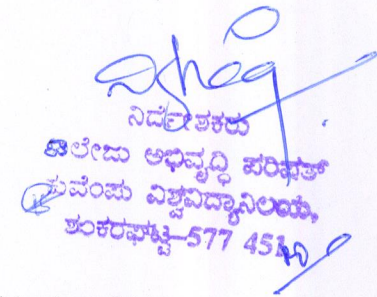 ನಿರ್ದೇಶಕರು
ಕಾಲೇಜು ಅಭಿವೃದ್ಧಿ ಪರಿಷತ್
ಕುವೆಂಪು ವಿಶ್ವವಿದ್ಯಾನಿಲಯ,
ಶಂಕರಘಟ್ಟ-577 451